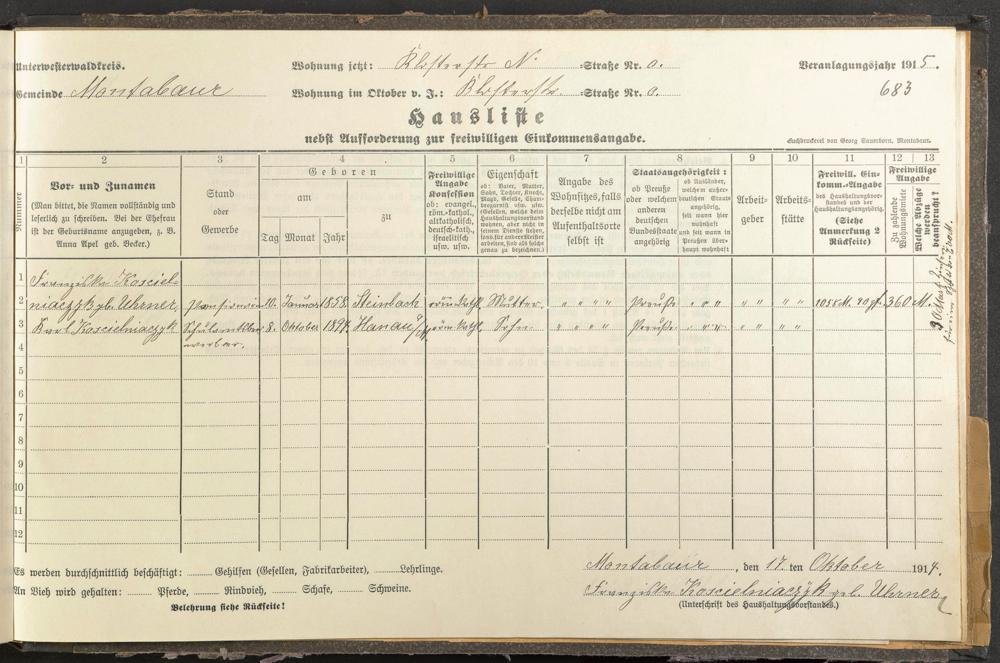 Unterwesterwaldkreis.
Wohnung jetzt: Klosterstr N. =Straße Nr. 0.
Veranlagungsjahr 1915.
Gemeinde Montabaur
Wohnung im Oktober v. J.: Klosterstr. =Straße Nr. 0.
683
Hausliste
nebst Aufforderung zur freiwilligen Einkommensangabe.
Buchdruckerei von Georg Sauerborn, Montabaur.
1 2 3 4 5 6 7 8 9 10 11 12 13
Nummer
Vor- und Zunamen
(Man bittet, die Namen vollständig und
leserlich zu schreiben. Bei der Ehefrau
ist der Geburtsname anzugeben, z. B.
Anna Apel geb. Becker.)
Stand
oder
Gewerbe
Geboren
am
zu
Tag Monat Jahr
Freiwillige
Angabe
Konfession
ob: evangel.,
röm.-kathol.,
altkatholisch,
deutsch-kath.,
israelitisch
usw.
Eigenschaft
ob: Vater, Mutter,
Sohn, Tochter, Knecht,
Magd, Geselle, Cham-
bregarnist usw.
(Gesellen, welche beim
Haushaltungsvorstand
wohnen, aber nicht in
seinem Dienste stehen,
sond. für andere Meister
arbeiten, sind als solche
genau zu bezeichnen.)
Angabe des
Wohnsitzes, falls
derselbe nicht am
Aufenthaltsorte
selbst ist
Staatsangehörigkeit:
ob Preuße
oder welchem
anderen
deutschen
Bundesstaate
angehörig
ob Ausländer,
welchem außer-
deutschen Staate
angehörig,
seit wann hier
wohnhaft
und seit wann in
Preußen über-
haupt wohnhaft
Arbeit-
geber
Arbeits-
stätte
Freiwill. Ein-
komm.-Angabe
des Haushaltungsvor-
standes und der
Haushaltungsangehörig.
(Siehe
Anmerkung 2
Rückseite)
Freiwillige
Angabe
Zu zahlende
Wohnungsmiete
Welche Abzüge
werden
beansprucht?
1 Franziska Kosciel-
2 niaczyk gb. Uhrner, 10. Januar 1858. Steinbach röm. kathl. Mutter. " " " " Preuße " " " " " " " 1058 M. 360 M.
3 Karl Koscielniaczyk 8. Oktober 1894. Hanau röm. kathl. Sohn " " " " Preuße " " " " " " "
4
5
6
7
8
9
10
11
12
Es werden durchschnittlich beschäftigt: Gehilfen (Gesellen, Fabrikarbeiter), Lehrlinge.
An Vieh wird gehalten: Pferde, Rindvieh, Schafe, Schweine.
Belehrung siehe Rückseite!
Montabaur, den 17. ten Oktober 1914.
Franziska Koscielniaczyk geb. Uhrner
(Unterschrift des Haushaltungsvorstandes.)